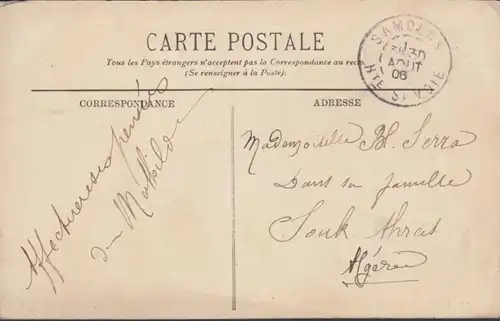 CARTE POSTALE
Tous les Pays étrangers n'acceptent pas la Correspondance au recto
(Se renseigner à la Poste)
SAMOËNS
30
AOUT
06
HTE SAVOIE
CORRESPONDANCE
ADRESSE
Affectueuses pensées
de Mathilde
Mademoiselle Bl. Serra
Dans sa famille
Souk Ahras
Algérie